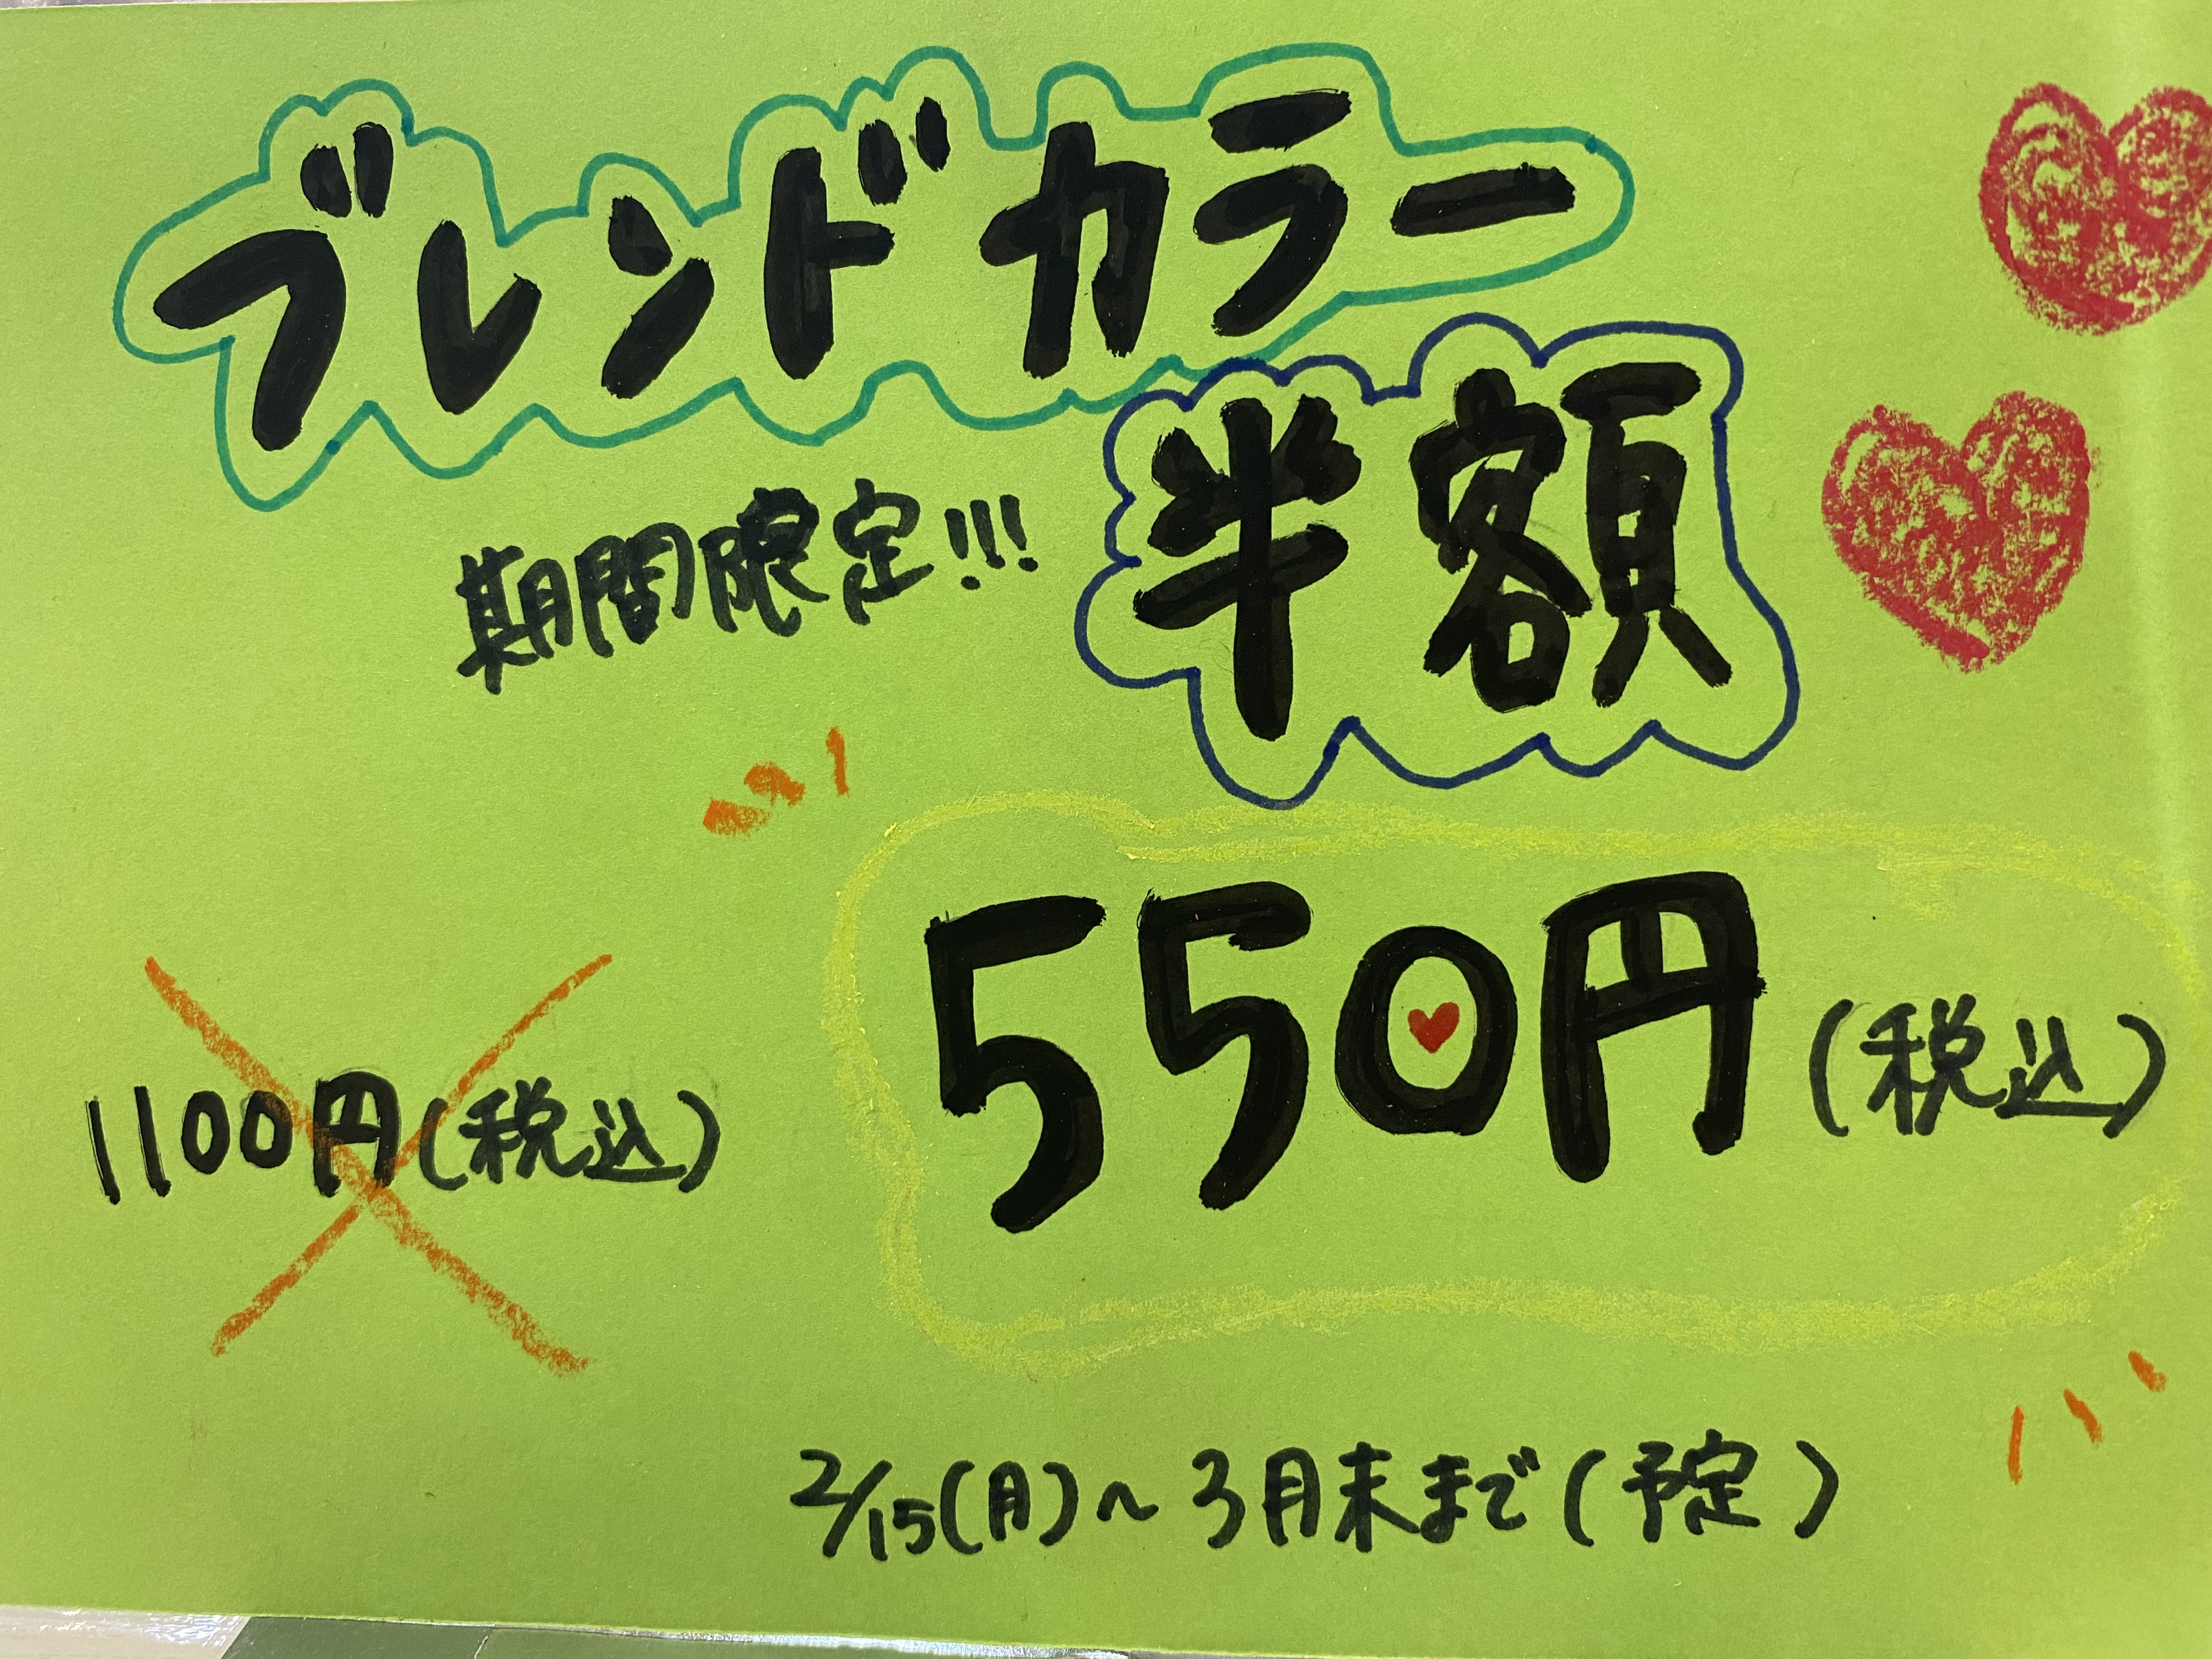 ブレンドカラー
半額
期間限定!!!
550円(税込)
1100円(税込)
2/15(月)~3月末まで(予定)